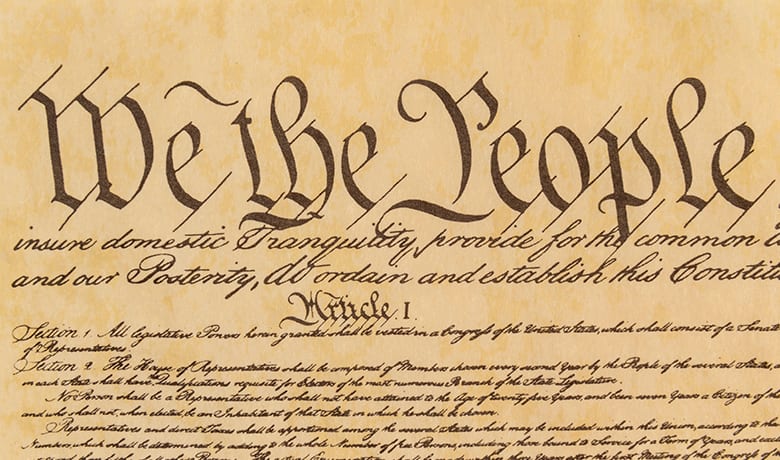 We the People
insure domestic Tranquility, provide for the common
and our Posterity, do ordain and establish this Constitu
Article. I.
Section 1. All legislative Powers herein granted shall be vested in a Congress of the United States, which shall consist of a Senat
of Representatives.
Section 2. The House of Representatives shall be composed of Members chosen every second Year by the People of the several States, a
in each State shall have Qualifications requisite for Electors of the most numerous Branch of the State Legislature.
No Person shall be a Representative who shall not have attained to the Age of twenty five Years, and been seven Years a Citizen of th
and who shall not, when elected, be an Inhabitant of that State in which he shall be chosen.
Representatives and direct Taxes shall be apportioned among the several States which may be included within this Union, according to the
Numbers, which shall be determined by adding to the whole Number of free Persons, including those bound to Service for a Term of Years, and exc